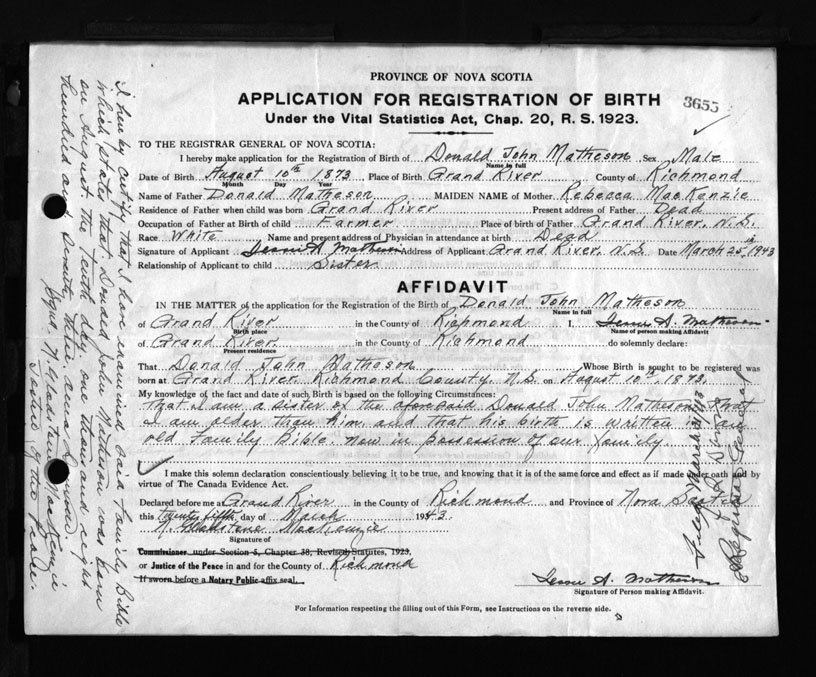 PROVINCE OF NOVA SCOTIA
APPLICATION FOR REGISTRATION OF BIRTH
3655
Under the Vital Statistics Act, Chap. 20, R. S. 1923.
TO THE REGISTRAR GENERAL OF NOVA SCOTIA:
I hereby make application for the Registration of Birth of Donald John Matheson Sex Male
Name in full
Date of Birth August 10th 1873 Place of Birth Grand River County of Richmond
Month Day Year
Name of Father Donald Matheson MAIDEN NAME of Mother Rebecca MacKenzie
Residence of Father when child was born Grand River Present address of Father Dead
Occupation of Father at Birth of child Farmer Place of birth of Father Grand River, N.S.
Race White Name and present address of Physician in attendance at birth Dead
Signature of Applicant Jessie A. Matheson Address of Applicant Grand River, N.S. Date March 25th 1943
Relationship of Applicant to child Sister
AFFIDAVIT
IN THE MATTER of the application for the Registration of the Birth of Donald John Matheson
Name in full
of Grand River in the County of Richmond I, Jessie A. Matheson
Birth place Name of person making Affidavit
of Grand River in the County of Richmond do solemnly declare:
Present residence
That Donald John Matheson Whose Birth is sought to be registered was
born at Grand River Richmond County, N.S. on August 10th, 1873.
My knowledge of the fact and date of such Birth is based on the following Circumstances:
That I am a sister of the aforesaid Donald John Matheson, that
I am older than him and that his birth is written in an
old Family Bible. now in possession of our family.
I make this solemn declaration conscientiously believing it to be true, and knowing that it is of the same force and effect as if made under oath and by
virtue of The Canada Evidence Act.
Declared before me at Grand River in the County of Richmond and Province of Nova Scotia
this twenty fifth day of March 1943.
N. Gladstone MacKenzie
Signature of
Commissioner under Section 5, Chapter 38, Revised Statutes, 1923,
or Justice of the Peace in and for the County of Richmond
If sworn before a Notary Public affix seal.
Jessie A. Matheson
Signature of Person making Affidavit.
For Information respecting the filling out of this Form, see Instructions on the reverse side.
I hereby certify that I have examined said Family Bible
which states that Donald John Matheson was born
on August the tenth day one thousand eight
hundred and seventy three
N. Gladstone MacKenzie
Justice of the Peace.
Filed March 31/43
Registrar General